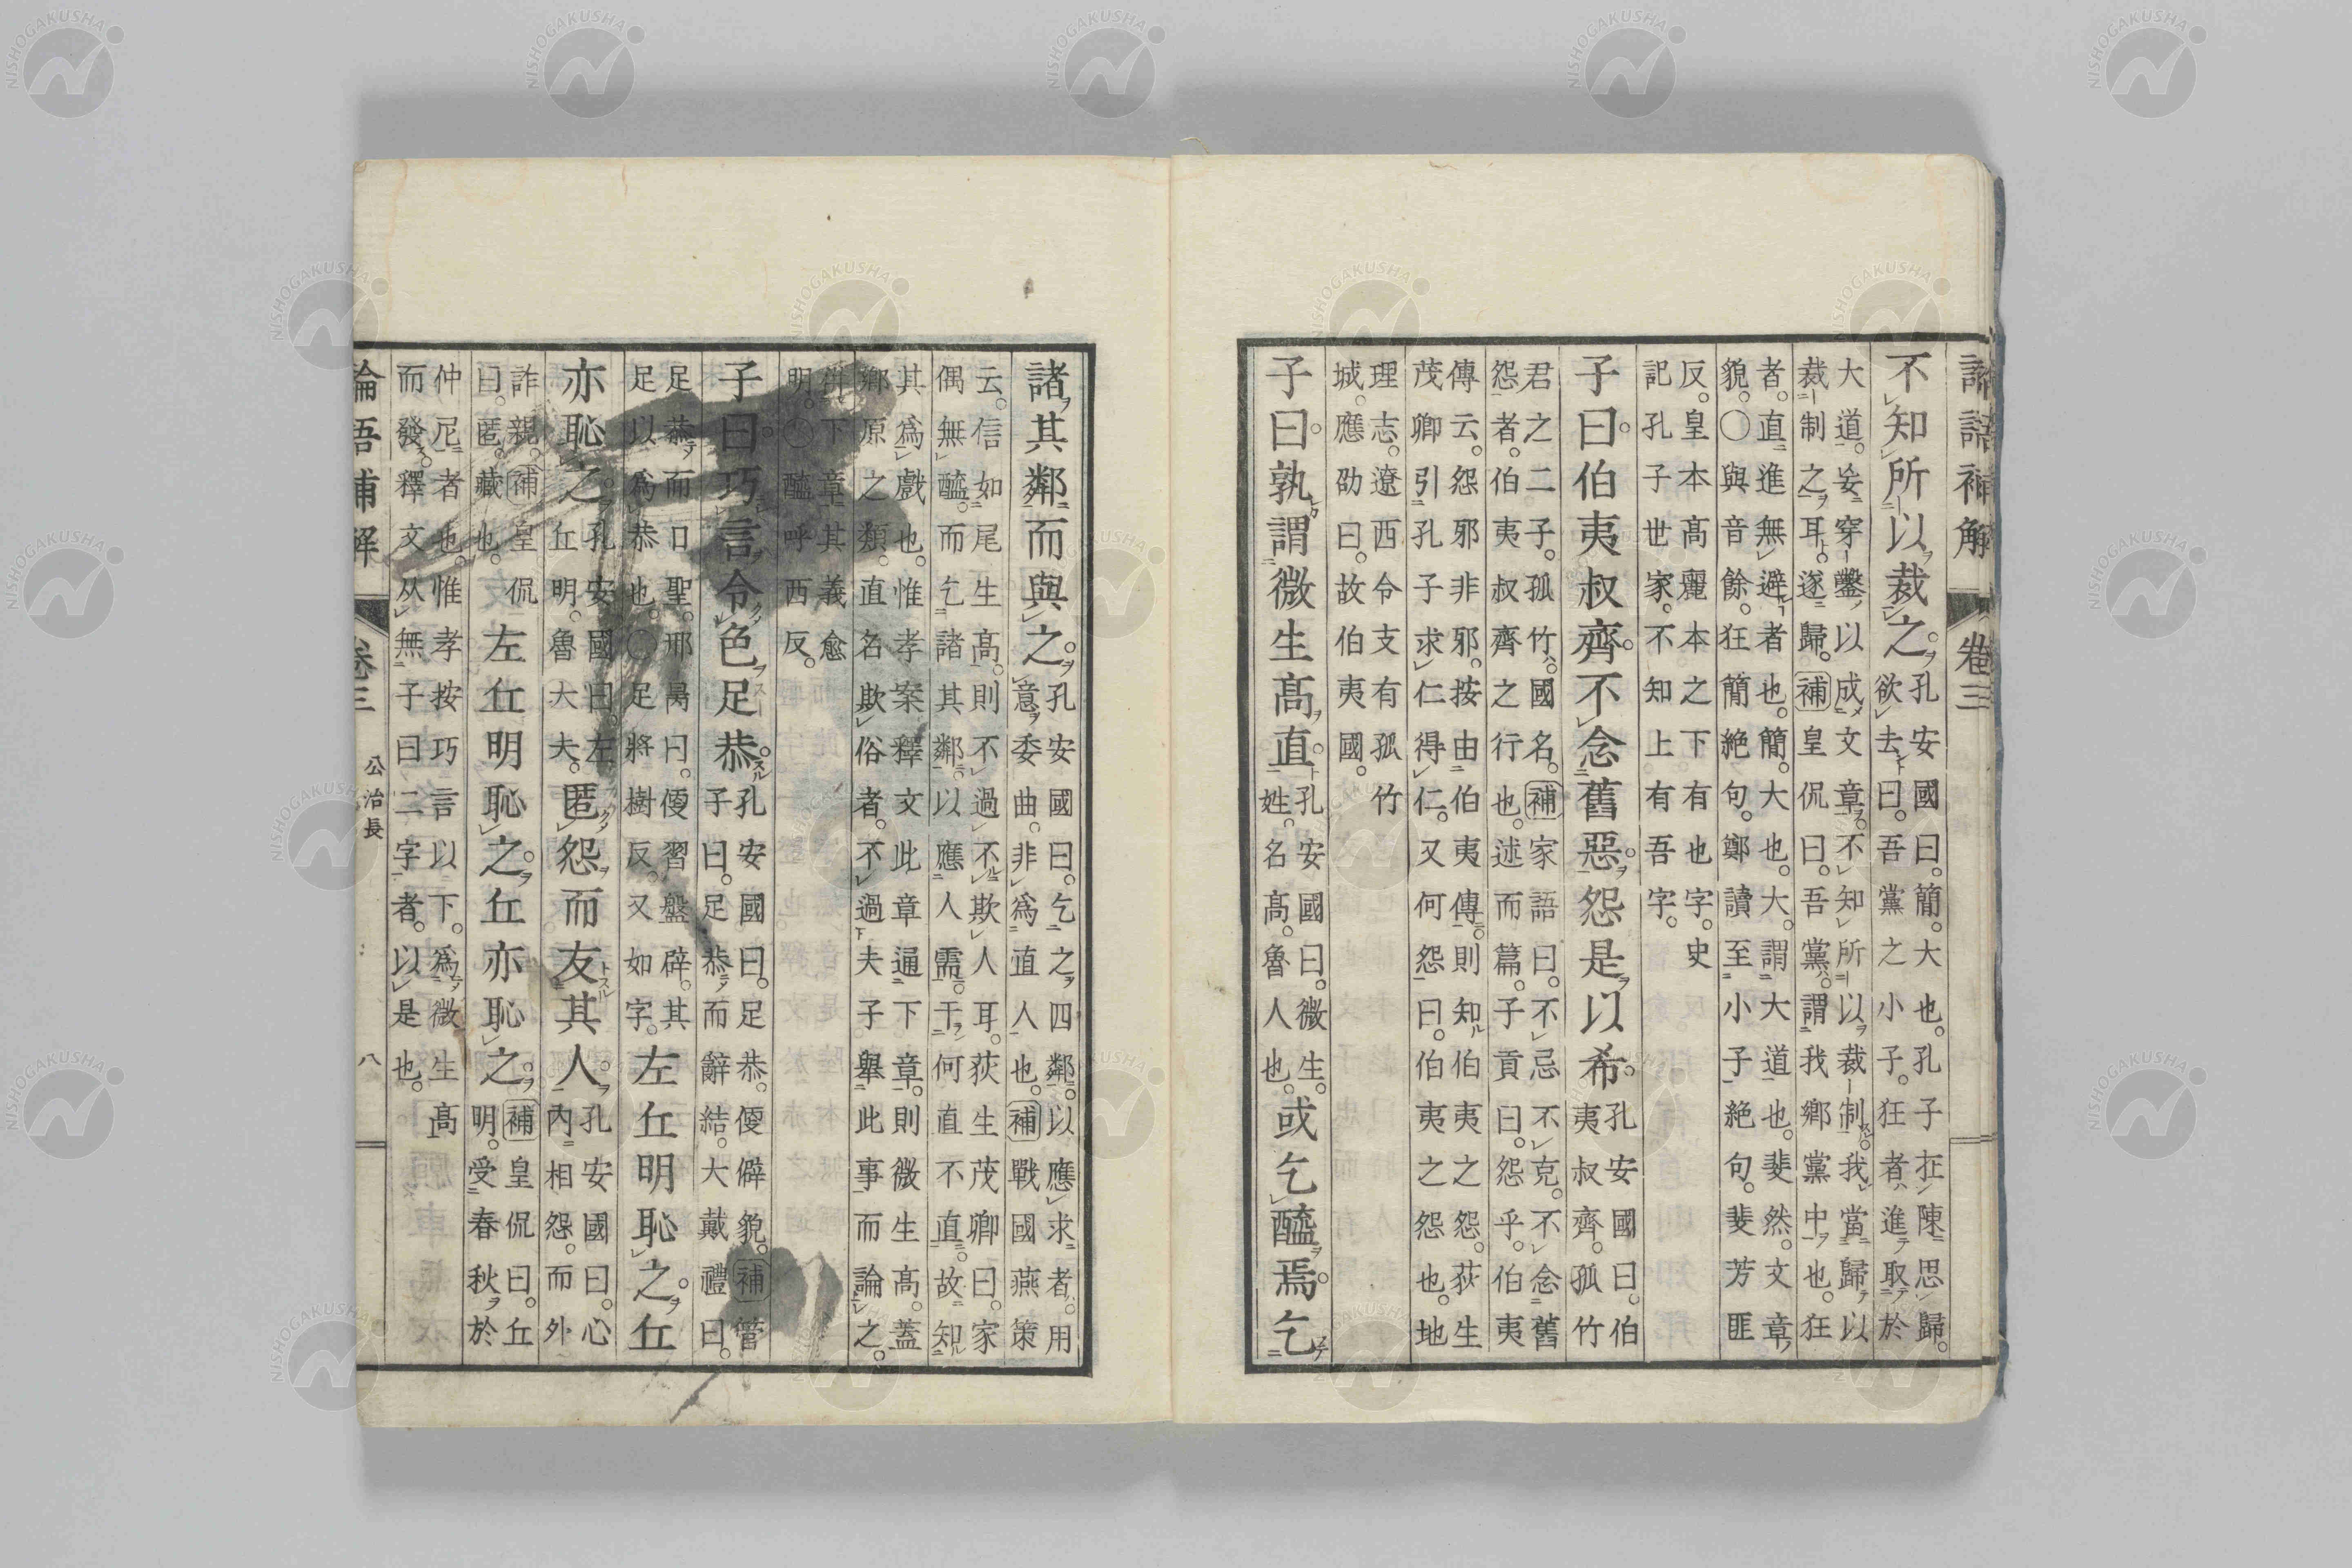 論語補解　卷三
不知所以裁之。
孔安國曰。簡。大也。孔子在陳思歸。
欲去曰。吾黨之小子。狂者進取於
大道。妄穿鑿以成文章。不知所以裁制。我當歸以
裁制之耳。遂歸。補皇侃曰。吾黨。謂我鄉黨中也。狂
者。直進無避者也。簡。大也。大。謂大道也。斐然。文章
貌。〇與音餘。狂簡絶句。鄭讀至小子絶句。斐芳匪
反。皇本髙麗本之下有也字。史
記孔子世家。不知上有吾字。
子曰。伯夷叔齊。不念舊惡。怨是以希。
孔安國曰。伯
夷叔齊。孤竹
君之二子。孤竹。國名。補家語曰。不忌不克。不念舊
怨者。伯夷叔齊之行也。述而篇。子貢曰。怨乎。伯夷
傳云。怨邪非邪。按由伯夷傳。則知伯夷之怨。荻生
茂卿引孔子求仁得仁。又何怨曰。伯夷之怨也。地
理志。遼西令支有孤竹
城。應劭曰。故伯夷國。
子曰。孰謂微生髙直。
孔安國曰。微生。
姓。名髙。魯人也。
或乞醯焉。乞
諸其鄰而與之。
孔安國曰。乞之四鄰。以應求者。用
意委曲。非爲直人也。補戰國燕策
云。信如尾生髙。則不過不欺人耳。荻生茂卿曰。家
偶無醯。而乞諸其鄰。以應人需。干何直不直。故知
其爲戲也。惟孝案釋文此章通下章。則微生髙。蓋
鄉原之類。直名欺俗者。不過夫子舉此事而論之。
下章其義愈
明。〇醯呼西反。
子曰。巧言令色足恭。
孔安國曰。足恭。便僻貌。補管
子曰。足恭而辭結。大戴禮曰。
足恭而口聖。邢昺曰。便習盤辟。其
足以爲恭也。〇足將樹反。又如字。
左丘明恥之。丘
亦恥之。
孔安國曰。左
丘明。魯大夫。
匿怨而友其人。
孔安國曰。心
內相怨。而外
詐親。補皇侃
曰。匿。藏也。
左丘明恥之。丘亦恥之。
補皇侃曰。丘
明。受春秋於
仲尼者也。惟孝按巧言以下。爲微生髙
而發。釋文从無子曰二字者。以是也。
論吾補解　卷三　公冶長　八